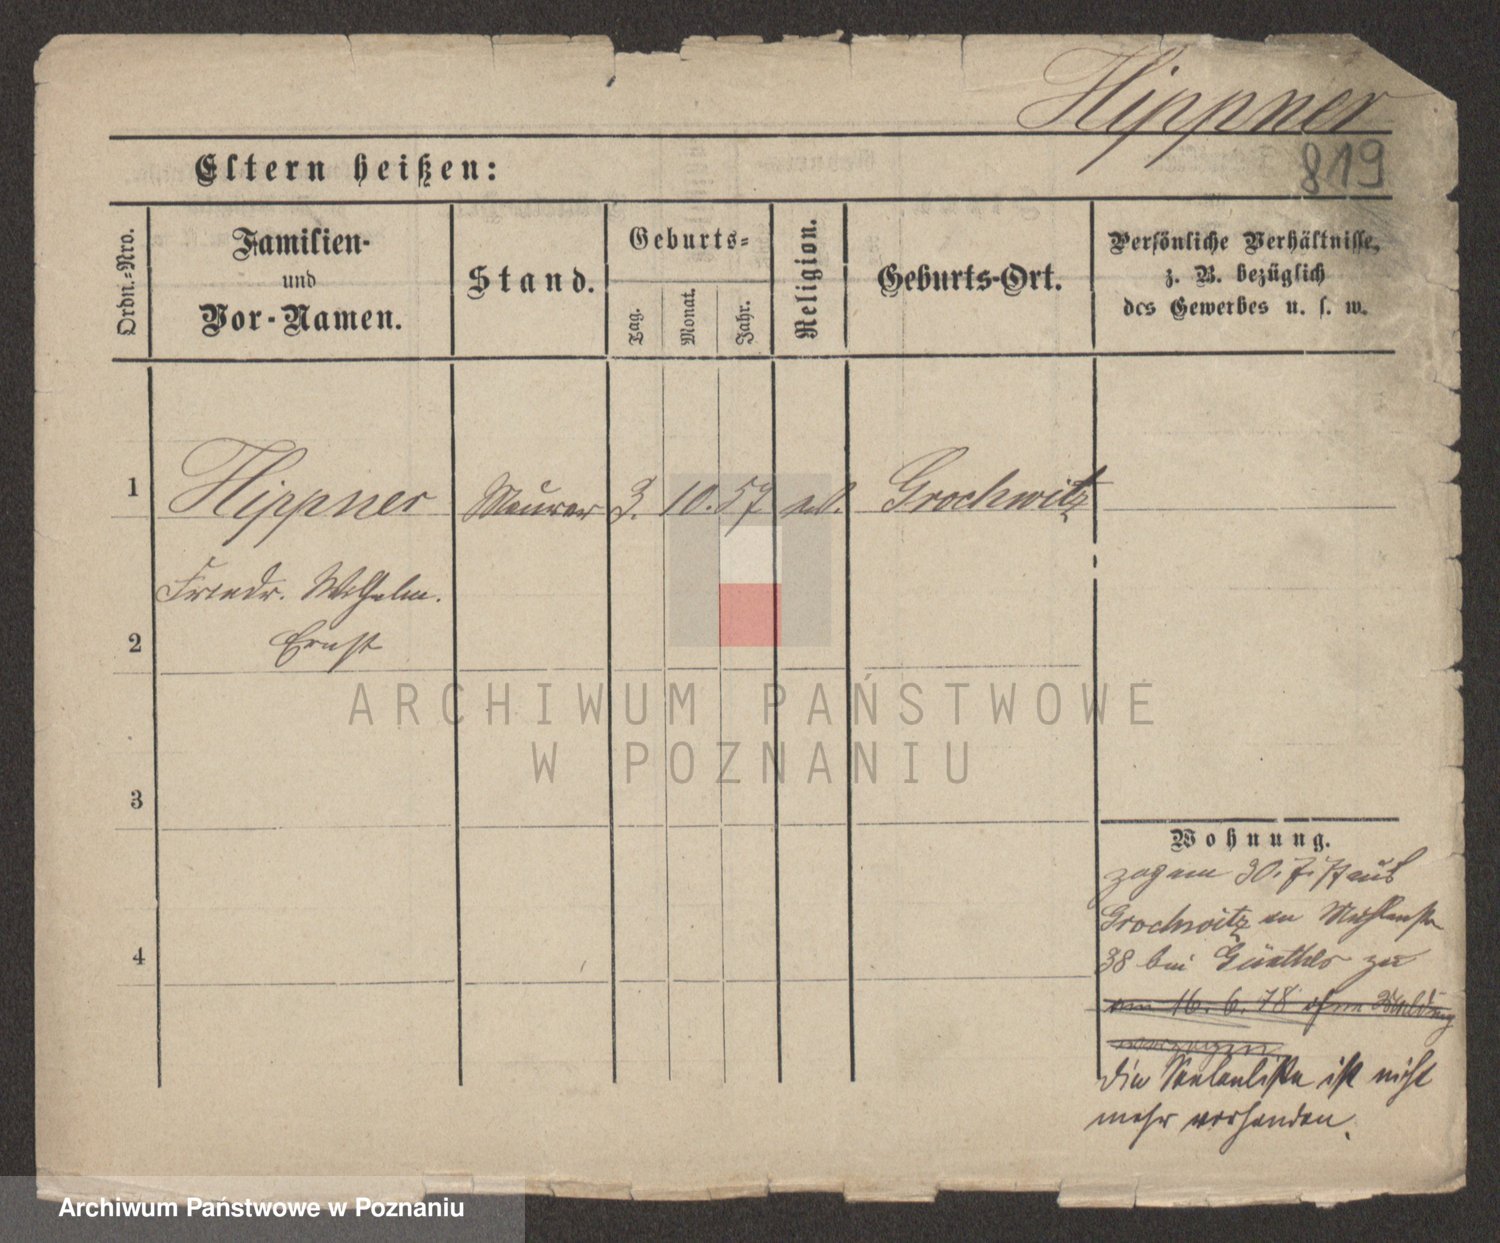 Hippner
819
Eltern heißen:
Ordn.-Nro.
Familien-
und
Vor-Namen.
Stand.
Geburts-
Tag.
Monat.
Jahr.
Religion.
Geburts-Ort.
Persönliche Verhältnisse,
z. B. bezüglich
des Gewerbes u. s. w.
1
Hippner Maurer 3. 10. 57 ev. Grochwitz
Friedr. Wilhelm.
2
Ernst
3
4
Wohnung.
zog am 30. 7. 77 aus
Grochwitz
38 bei zu
am 16. 6. 78 ohne Meldung
verzogen
die Seelenliste ist nicht
mehr vorhanden.
ARCHIWUM PAŃSTWOWE
W POZNANIU
Archiwum Państwowe w Poznaniu